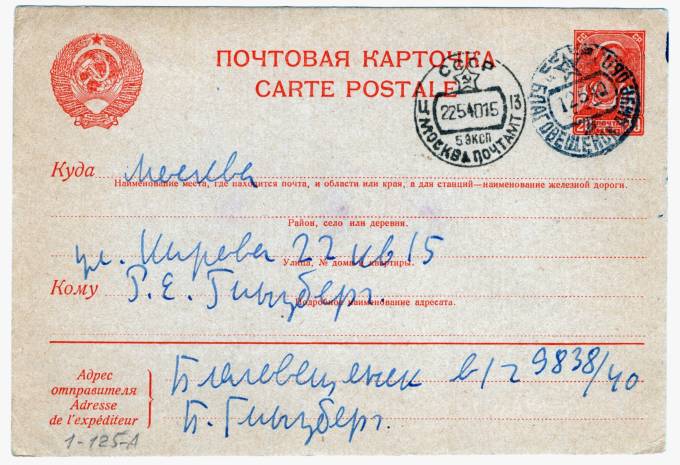 ПОЧТОВАЯ КАРТОЧКА
CARTE POSTALE
СССР
2254015
13
5 ЭКСП
МОСКВА ПОЧТАМТ
БЛАГОВЕЩЕНСК
Куда Москва
Наименование места, где находится почта, и области или края, а для станций—наименование железной дороги.
Район, село или деревня.
ул. Кирова 22 кв 15
Улица, № дома и квартиры.
Кому Г. Е. Гинзберг.
Подробное наименование адресата.
Адрес
отправителя
Adresse
de l'expéditeur
Благовещенск п/я 9838/40
Б. Гинзберг.
1-125-А